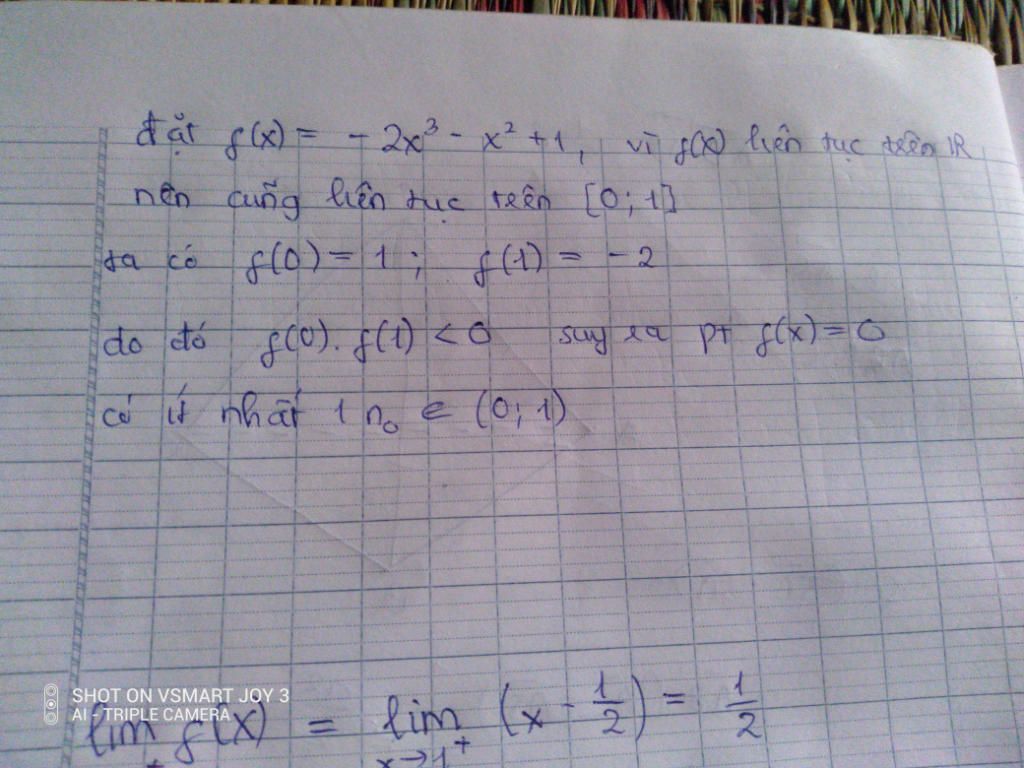 đặt f(x) = - 2x³ - x² + 1, vì f(x) liên tục trên ℝ
nên cũng liên tục trên [0; 1]
ta có f(0) = 1; f(1) = - 2
do đó f(0). f(1) < 0 suy ra pt f(x) = 0
có ít nhất 1 n₀ ∈ (0; 1)
SHOT ON VSMART JOY 3
AI - TRIPLE CAMERA
lim f(x) = lim (x - 1/2) = 1/2
x→1⁺